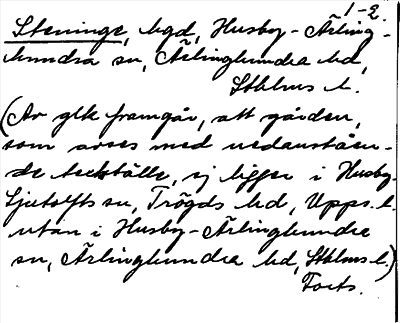 1-2.
Steninge, hgd, Husby-Ärling-
hundra sn, Ärlinghundra hd,
Sthlms l.
(Av glk framgår, att gården,
som avses med nedanståen-
de beställe, ej ligger i Husby-
Sjutolfts sn, Trögds hd, Upps. l.
utan i Husby-Ärlinghundra
sn, Ärlinghundra hd, Sthlms l.)
Forts.